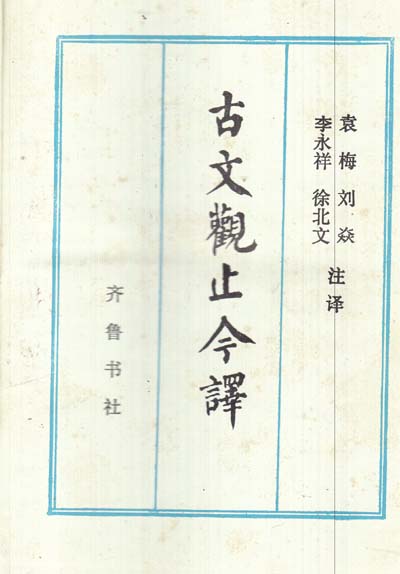 袁梅 刘焱
李永祥 徐北文
注译
古文觀止今譯
齐鲁书社